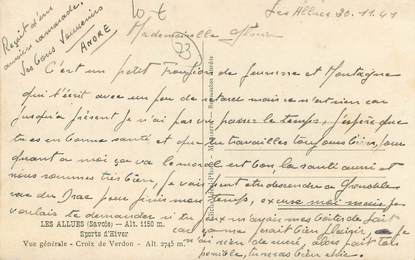 Les Allues 30.11.41
Reçoit d'un
ancien camarade
ses bons souvenirs
ANDRÉ
10 €
73
Mademoiselle
C'est un petit Trouffion de Jeunesse et Montagne
qui t'écrit avec un peu de retard mais ce n'est rien car
jusqu'à présent je n'ai pas vu passer le temps, j'espère que
tu es en bonne santé et que tu travailles toujours bien, pour
quant à moi ça va le moral est bon, la santé aussi et
nous sommes très bien, je vais peut être descendre à Grenoble
rue du Drac pour finir mon temps, excuse moi mais je
voulais te demander si tu
car ça me ferait bien plaisir, je
n'ai rien de moi, alors fait ton
possible, tu seras bien
LES ALLUES (Savoie) — Alt. 1150 m.
Sports d'Hiver
Vue générale - Croix de Verdon - Alt. 2745 m.